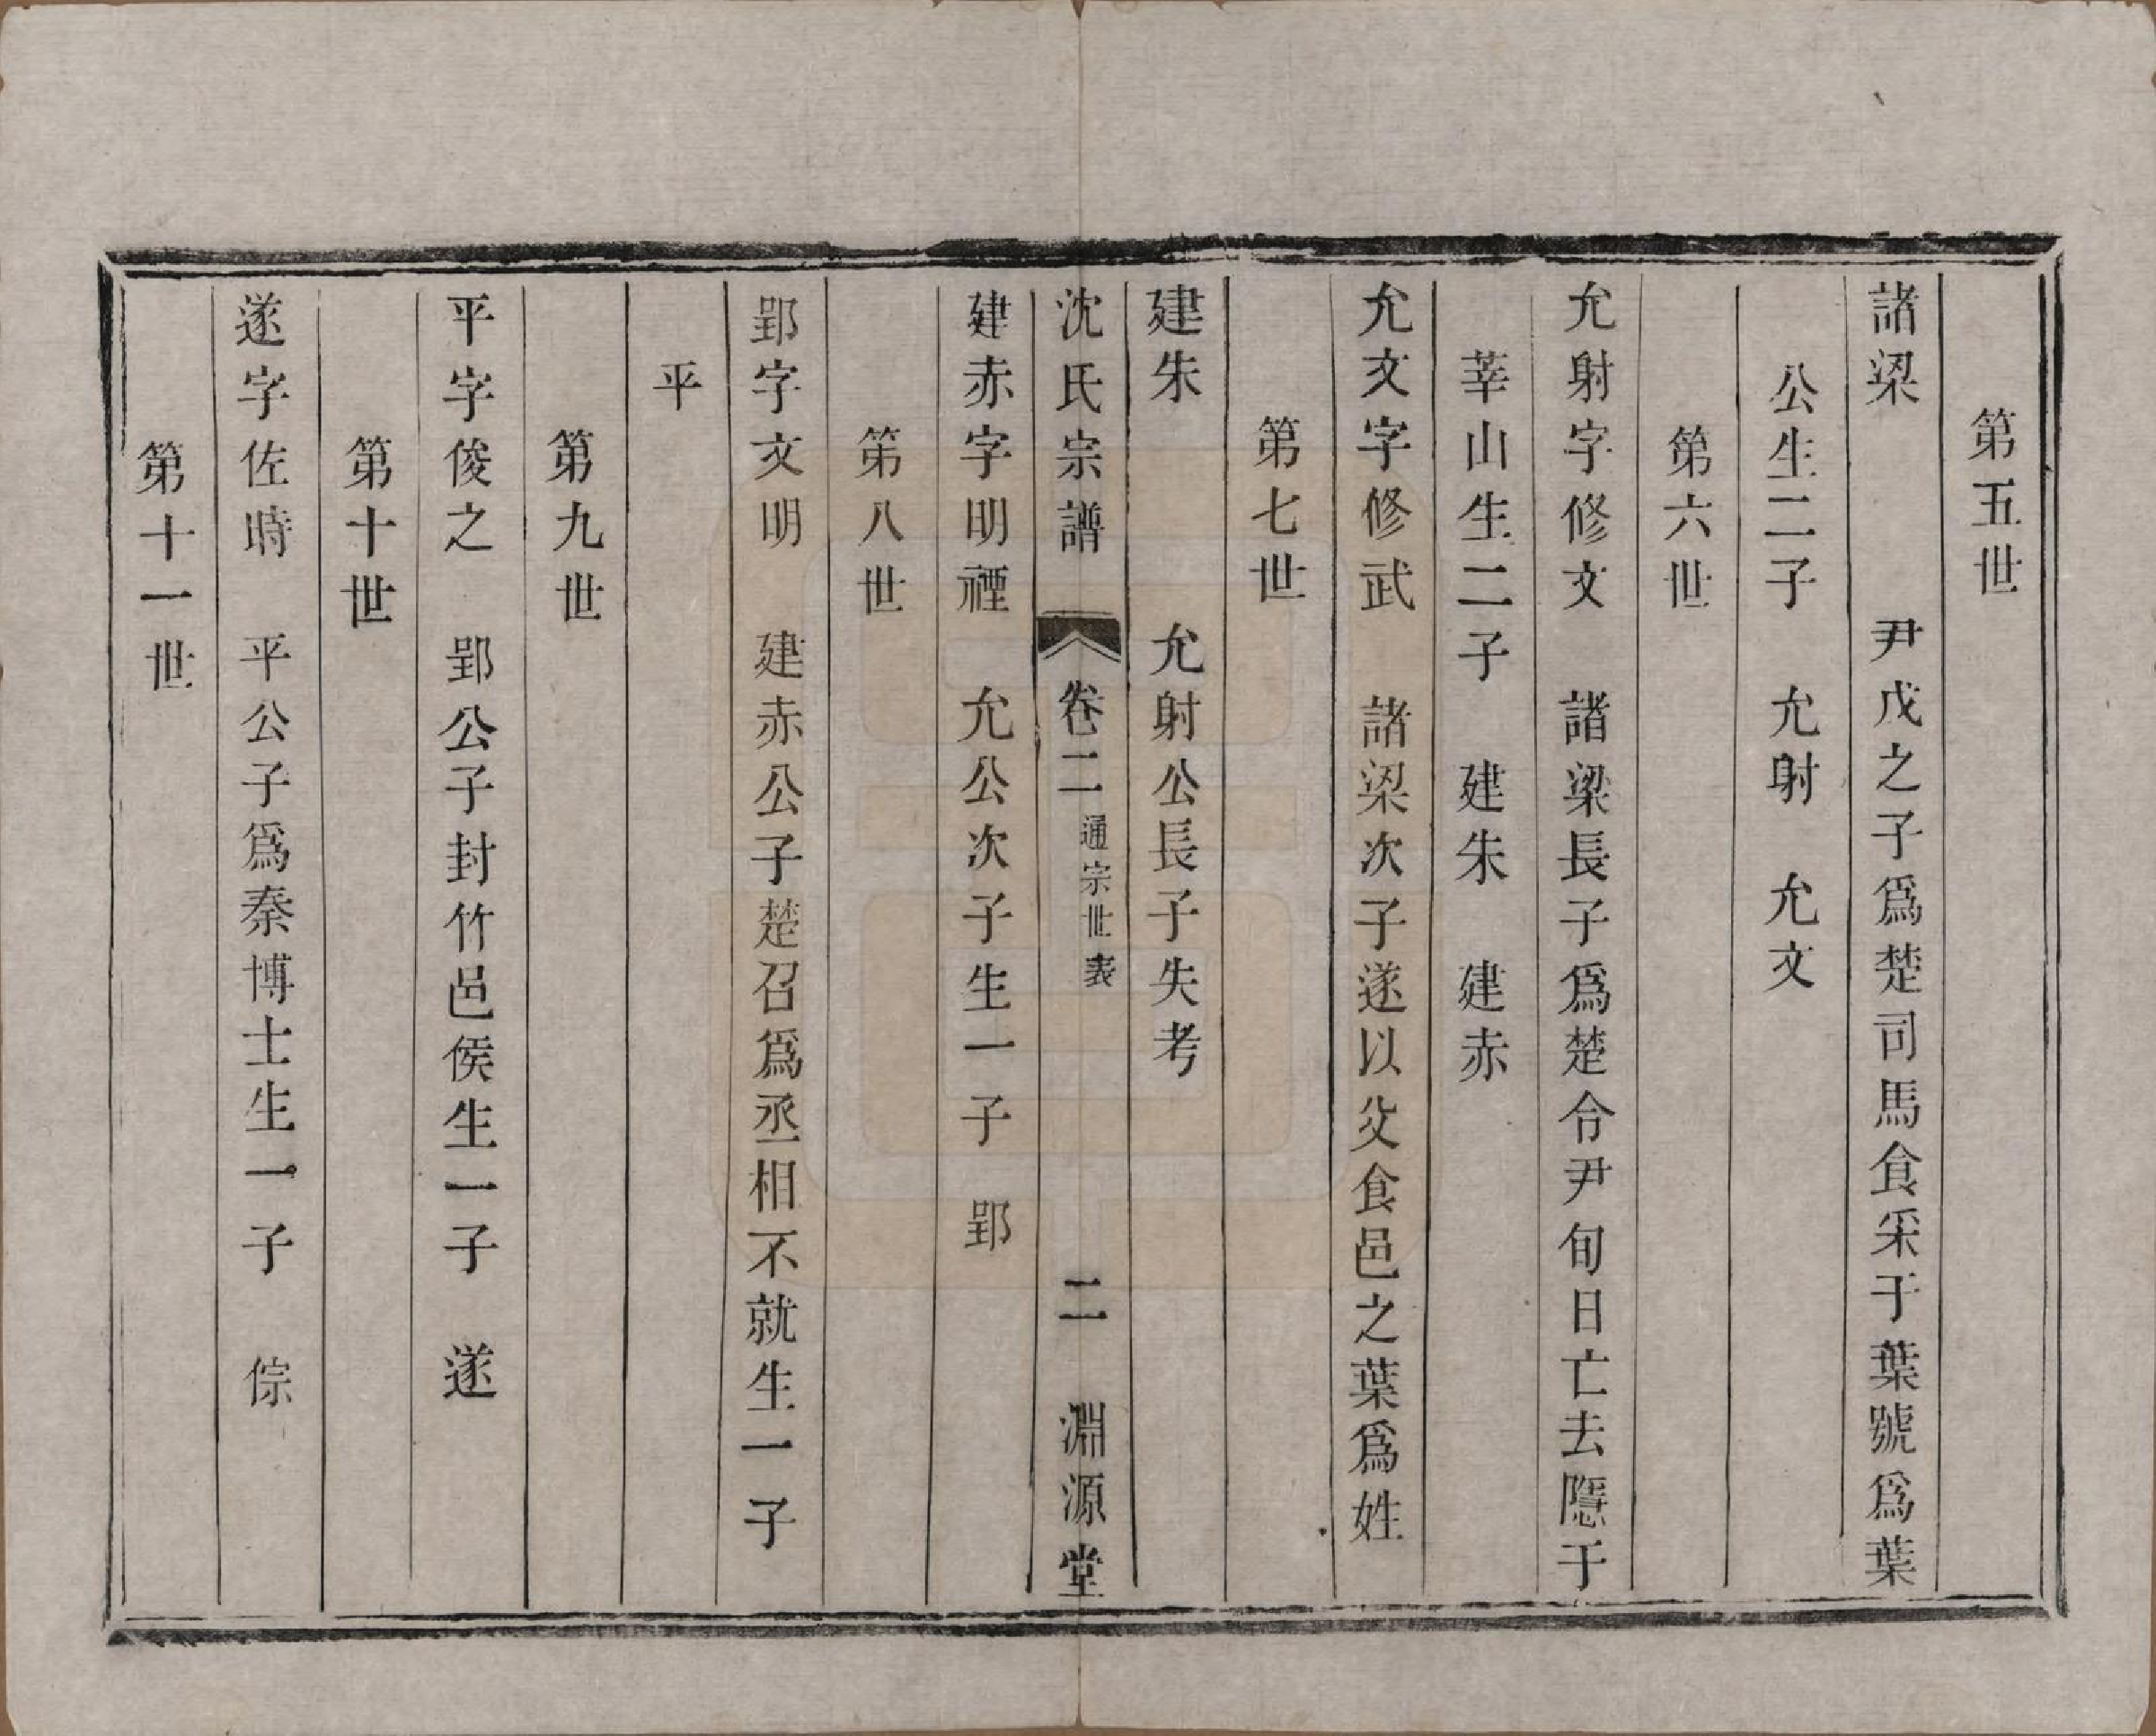 第五世
諸梁　尹戊之子爲楚司馬食采于葉號爲葉
公生二子　允射　允文
第六世
允射字修文　諸梁長子爲楚令尹旬日亡去隱于
莘山生二子　建朱　建赤
允文字修武　諸梁次子遂以父食邑之葉爲姓
第七世
建朱　允射公長子失考
沈氏宗譜　卷二　通宗世表　二　淵源堂
建赤字明禋　允公次子生一子　郢
第八世
郢字文明　建赤公子楚召爲丞相不就生一子
平
第九世
平字俊之　郢公子封竹邑侯生一子　遂
第十世
遂字佐時　平公子爲秦博士生一子　倧
第十一世